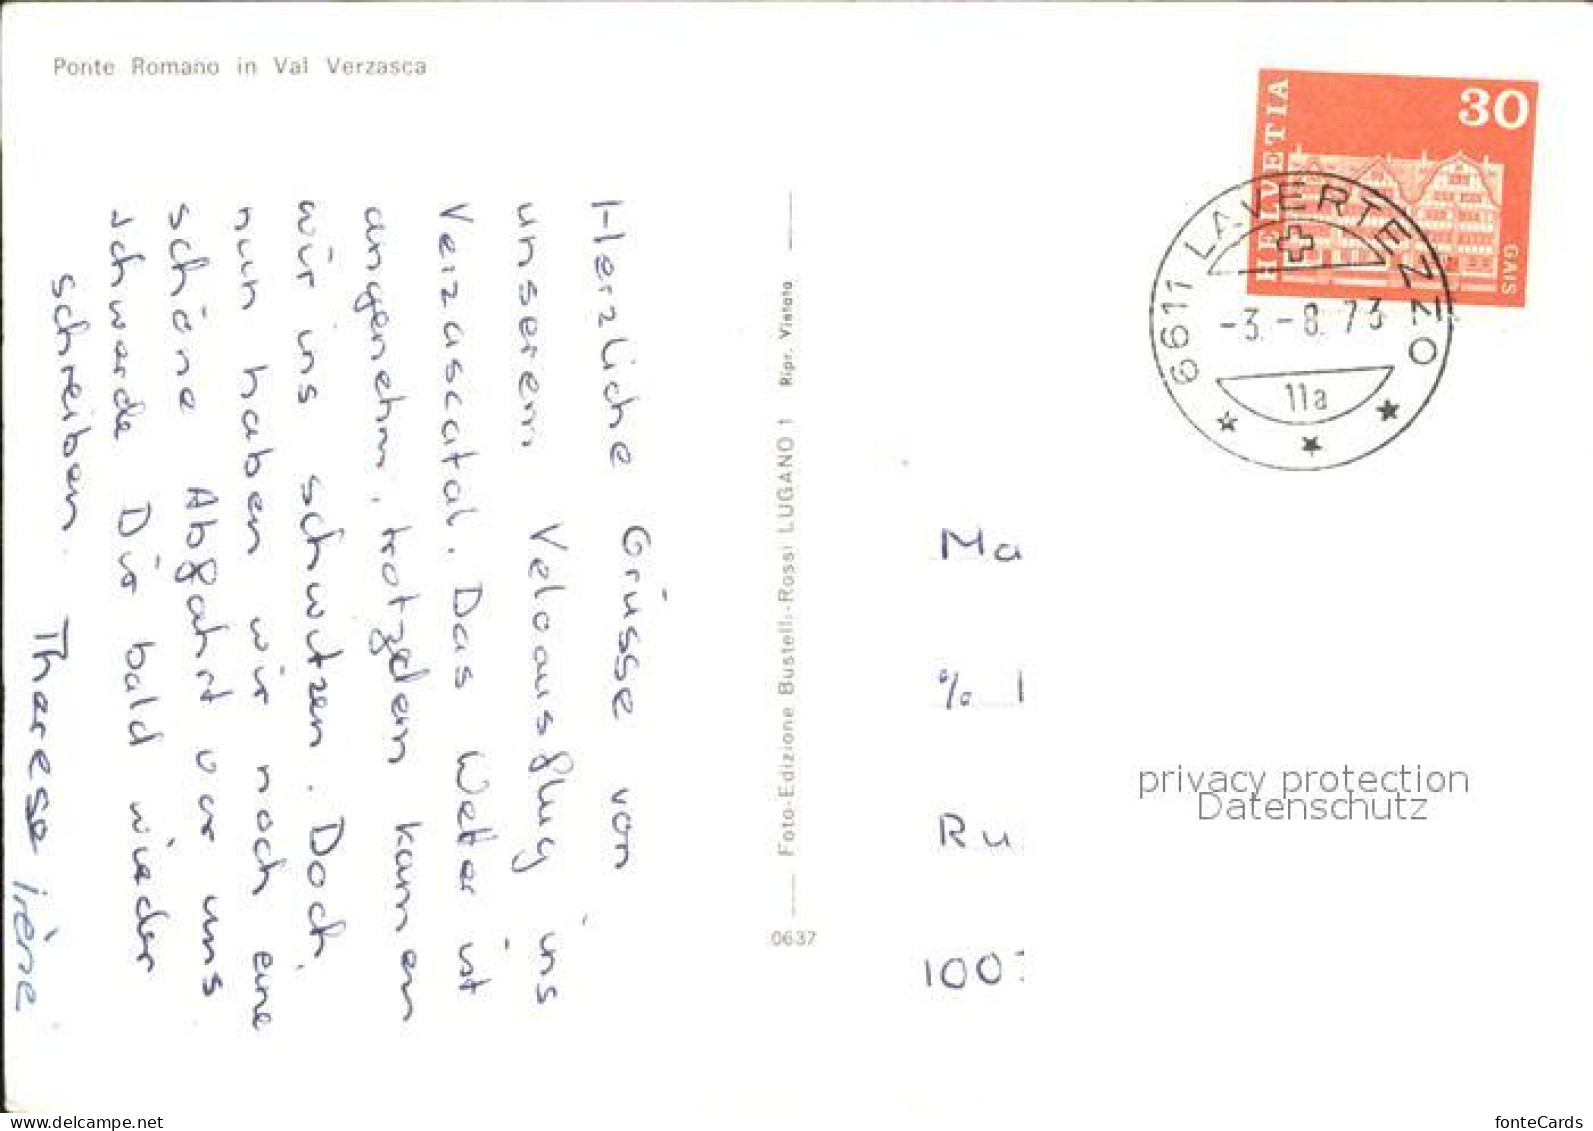 Ponte Romano in Val Verzasca
HELVETIA
30
GAIS
6611 LAVERTEZZO
-3.-8.73
11a
Herzliche Grüsse von
unserem Veloausflug ins
Verzascatal. Das Wetter ist
angenehm, trotzdem kamen
wir ins schwitzen. Doch
nun haben wir noch eine
schöne Abfahrt vor uns
ich werde Dir bald wieder
schreiben.
Therese irène
Foto-Edizione Bustelli-Rossi LUGANO 1 Ripr. Vietata
0637
Ma
% 1
Ru
100
privacy protection
Datenschutz
www.delcampe.net
fonteCards